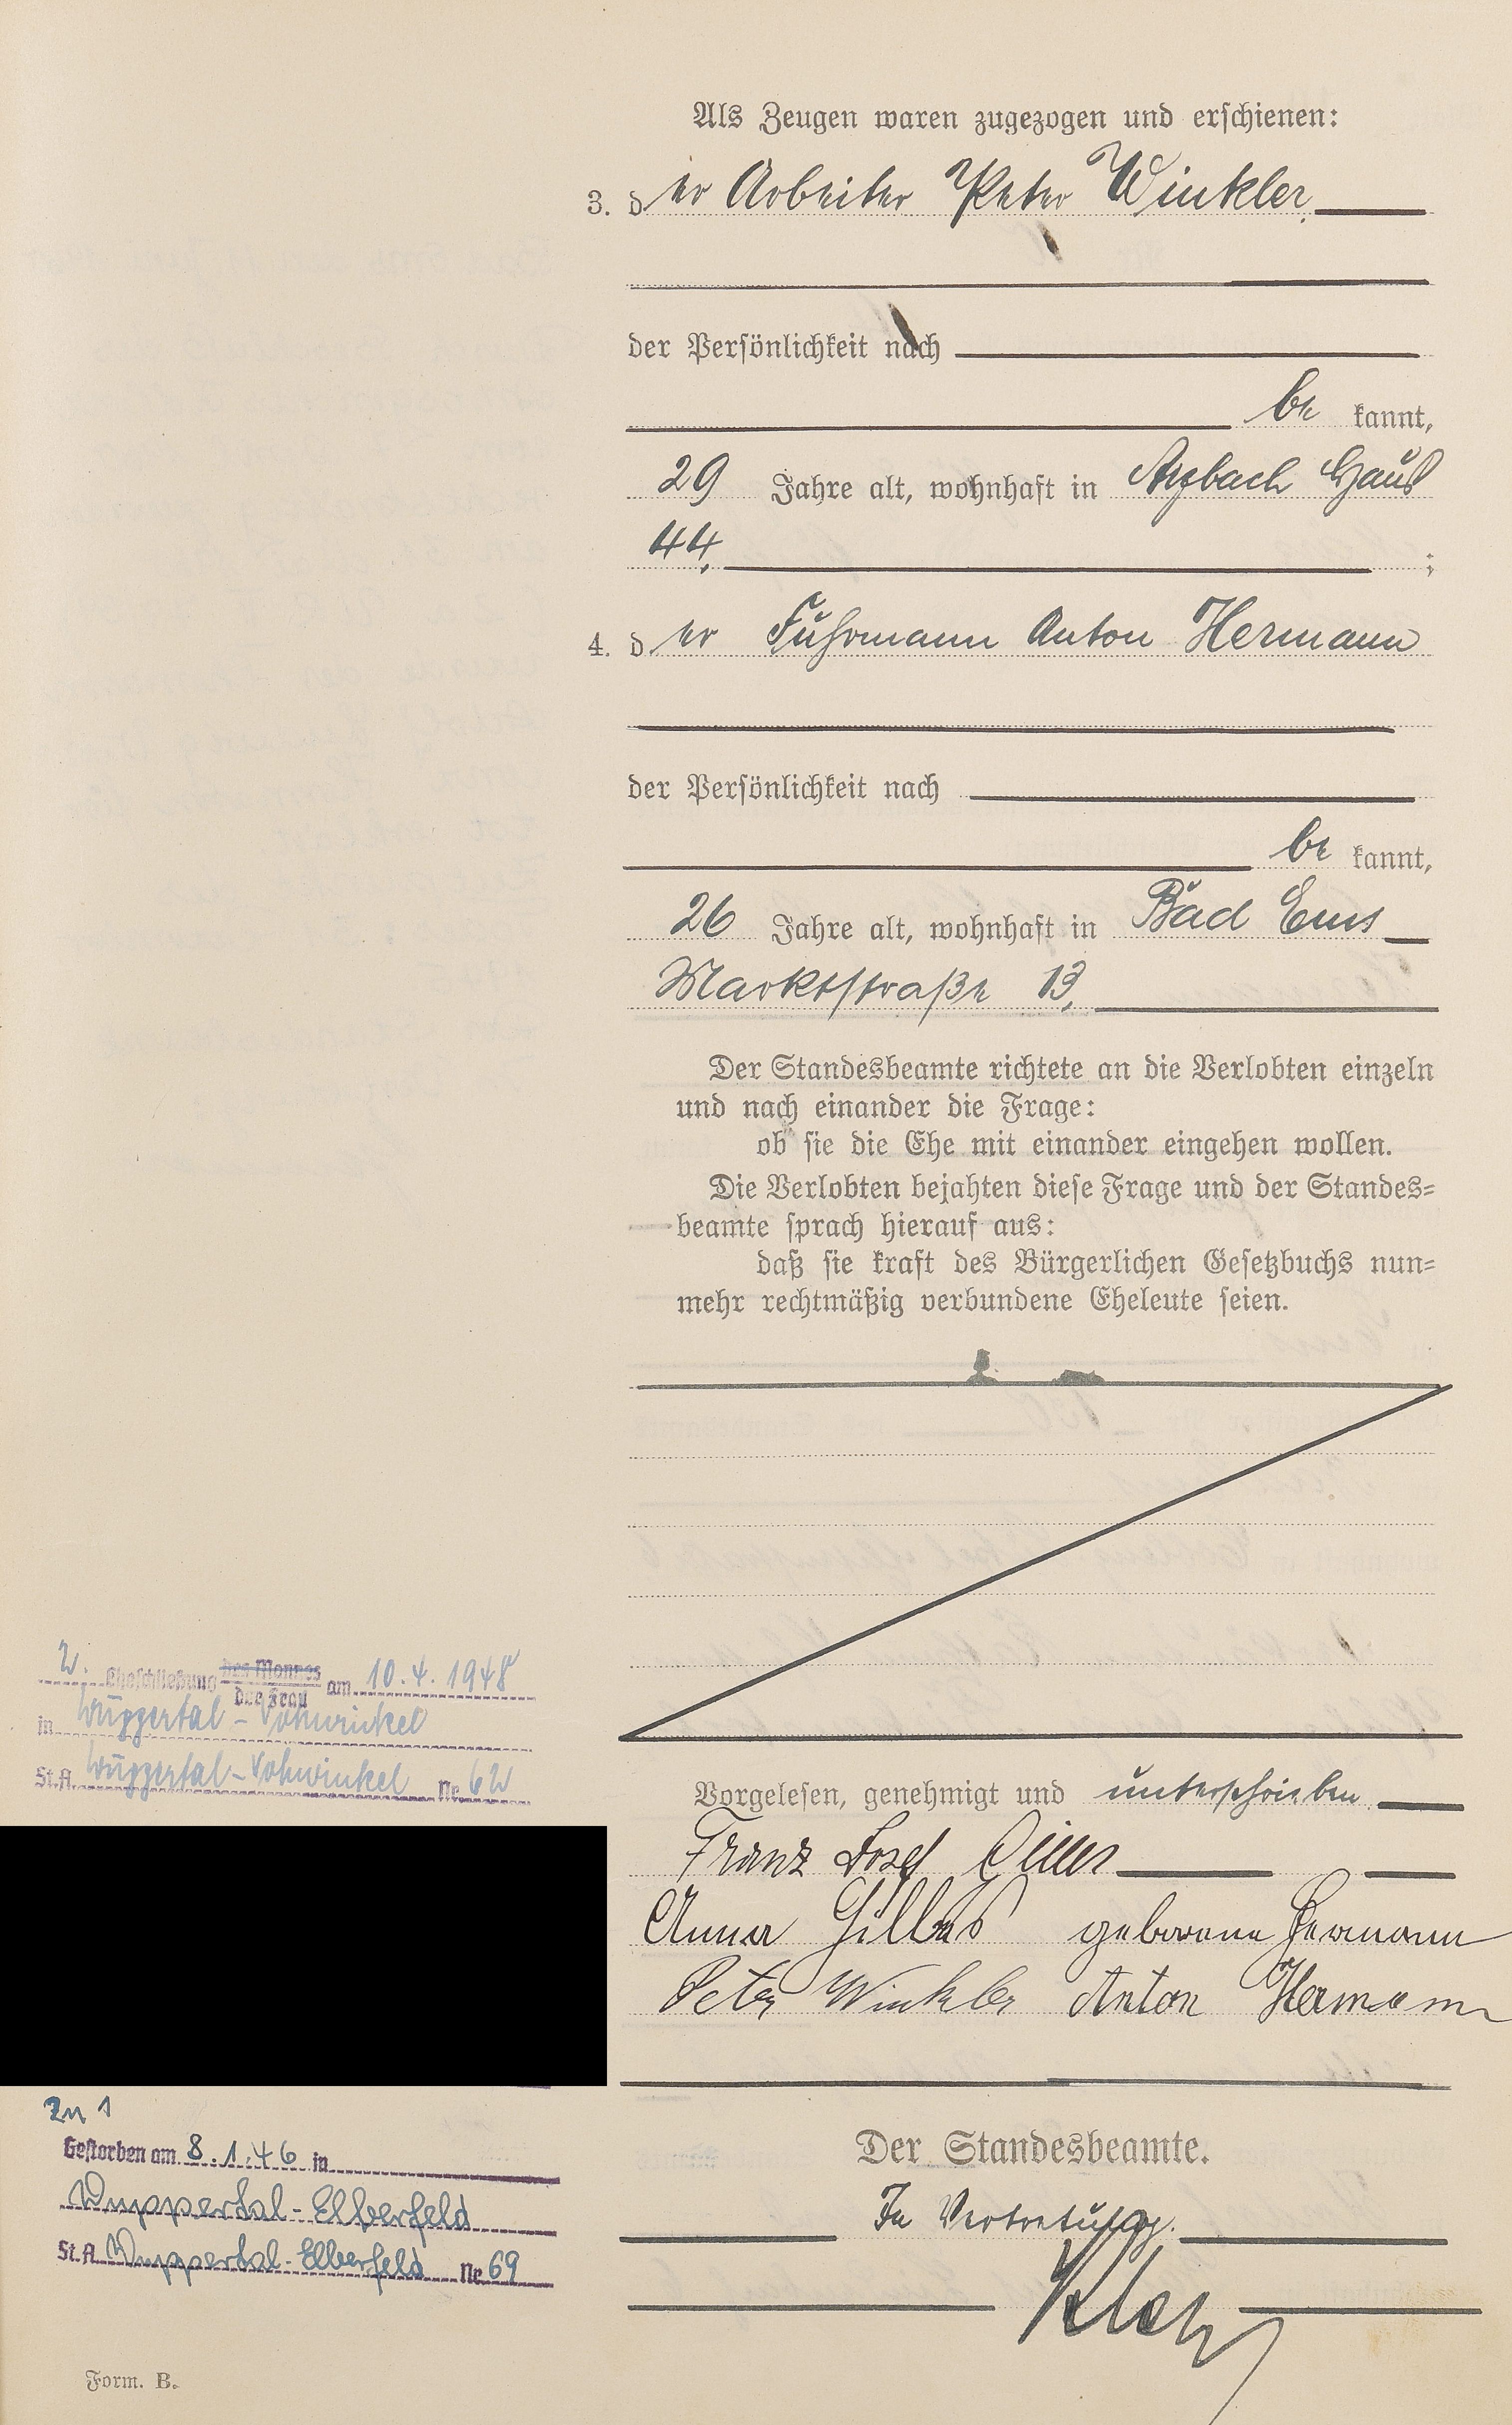 Als Zeugen waren zugezogen und erschienen:
3. der Arbeiter Peter Winkler
der Persönlichkeit nach
be kannt,
29 Jahre alt, wohnhaft in Arzbach Haus
44, ;
4. der Fuhrmann Anton Hermann
der Persönlichkeit nach
be kannt,
26 Jahre alt, wohnhaft in Bad Ems
Marktstraße 13,
Der Standesbeamte richtete an die Verlobten einzeln
und nach einander die Frage:
ob sie die Ehe mit einander eingehen wollen.
Die Verlobten bejahten diese Frage und der Standes=
beamte sprach hierauf aus:
daß sie kraft des Bürgerlichen Gesetzbuchs nun=
mehr rechtmäßig verbundene Eheleute seien.
Vorgelesen, genehmigt und unterschrieben.
Franz Josef
Anna Gilles geborene Hermann
Peter Winkler Anton Hermann
Der Standesbeamte.
In Vertretung.
2. Eheschließung des Mannes
der Frau am 10.4.1948
in Wuppertal-Vohwinkel
St.A. Wuppertal-Vohwinkel Nr. 62
Zu 1
Gestorben am 8.1.46 in
Wuppertal-Elberfeld
St.A. Wuppertal-Elberfeld Nr. 69
Form. B.